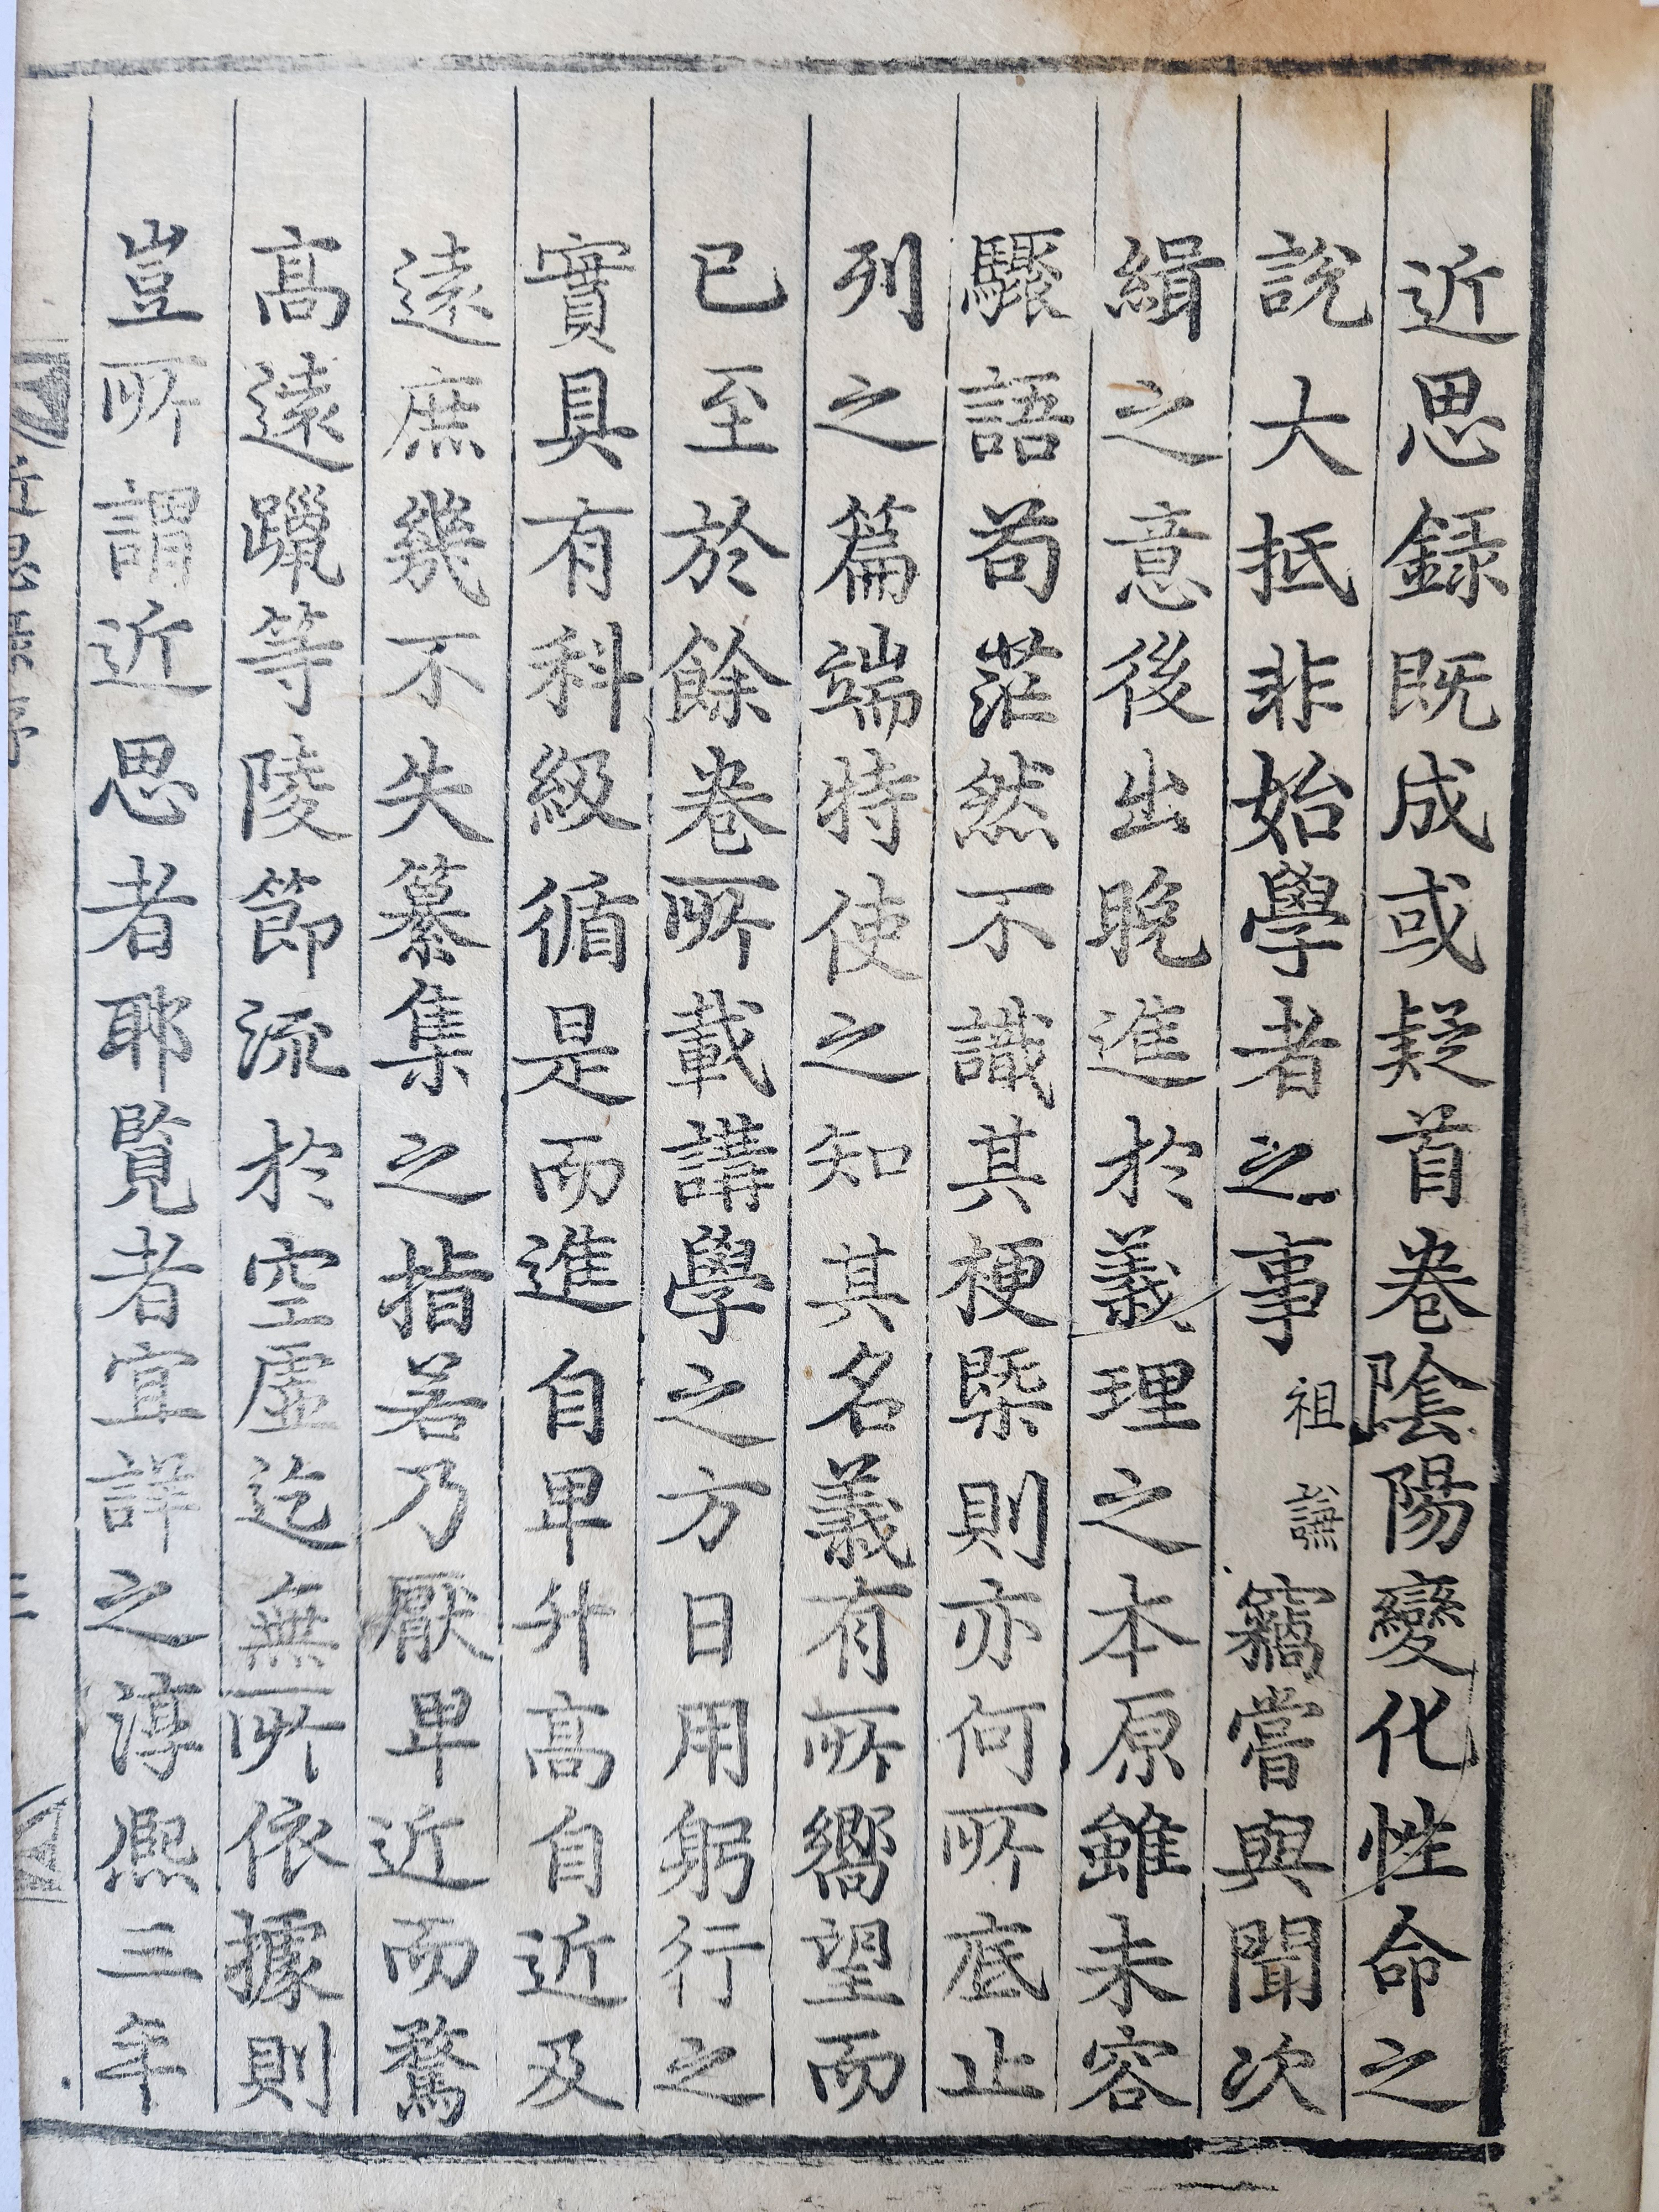 近思録既成或疑首卷陰陽變化性命之
說大抵非始學者之事祖謙竊嘗與聞次
緝之意後出晚進於義理之本原雖未容
驟語苟茫然不識其梗槩則亦何所底止
列之篇端特使之知其名義有所嚮望而
已至於餘卷所載講學之方日用躬行之
實具有科級循是而進自卑升高自近及
遠庶幾不失纂集之指若乃厭卑近而騖
高遠躐等陵節流於空虛迄無所依據則
豈所謂近思者耶覽者宜詳之淳熙三年